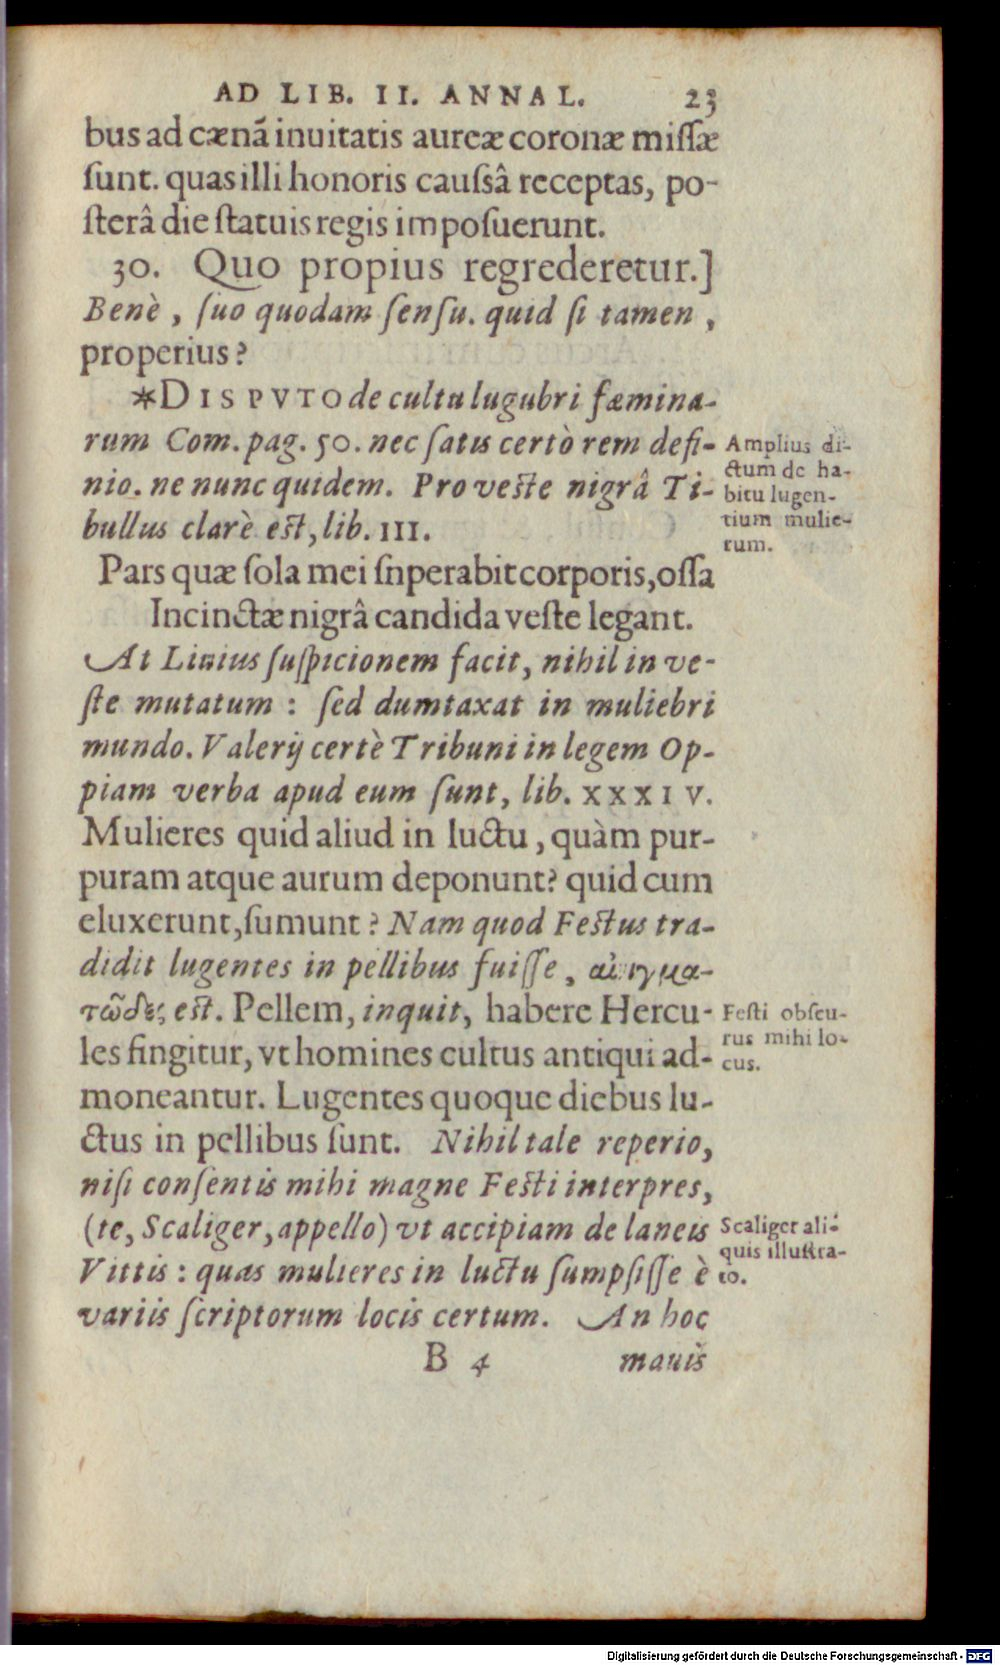 AD LIB. II. ANNAL. 23
bus ad cænã inuitatis aureæ coronæ missæ
sunt. quas illi honoris caussâ receptas, po-
sterâ die statuis regis imposuerunt.
30. Quo propius regrederetur.]
Benè, suo quodam sensu. quid si tamen,
properius?
*DISPVTO de cultu lugubri fæmina-
rum Com. pag. 50. nec satis certò rem defi-
nio. ne nunc quidem. Pro veste nigrâ Ti-
bullus clarè est, lib. III.
Pars quæ sola mei snperabit corporis, ossa
Incinctæ nigrâ candida veste legant.
At Liuius suspicionem facit, nihil in ve-
ste mutatum : sed dumtaxat in muliebri
mundo. Valerij certè Tribuni in legem Op-
piam verba apud eum sunt, lib. XXXIV.
Mulieres quid aliud in luctu, quàm pur-
puram atque aurum deponunt? quid cum
eluxerunt, sumunt? Nam quod Festus tra-
didit lugentes in pellibus fuisse, αἰνιγμα-
τῶδες est. Pellem, inquit, habere Hercu-
les fingitur, vt homines cultus antiqui ad-
moneantur. Lugentes quoque diebus lu-
ctus in pellibus sunt. Nihil tale reperio,
nisi consentis mihi magne Festi interpres,
(te, Scaliger, appello) vt accipiam de laneis
Vittis : quas mulieres in luctu sumpsisse è
variis scriptorum locis certum. An hoc
B 4 mauis
Amplius di-
ctum de ha-
bitu lugen-
tium mulie-
rum.
Festi obscu-
rus mihi lo-
cus.
Scaliger ali-
quis illustra-
to.
Digitalisierung gefördert durch die Deutsche Forschungsgemeinschaft - DFG